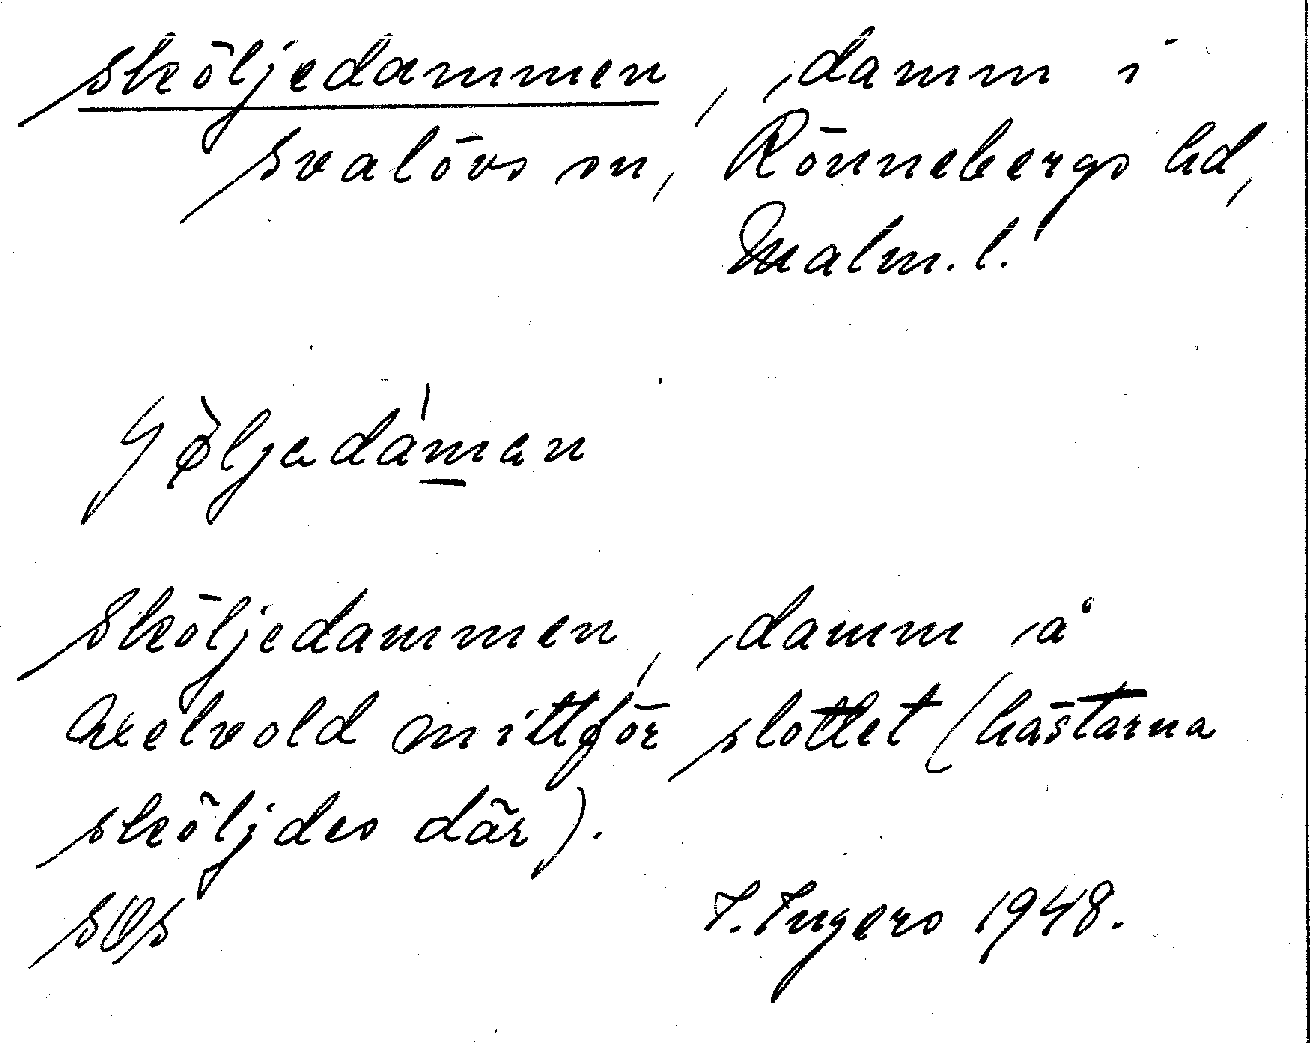 sköljedammen, damm i
Svalövs sn, Rönnebergs hd,
Malm. l.
Sköljedammen, damm å
Axelvold mittför slottet (hästarna
sköljdes där).
SOS I. Ingers 1948.